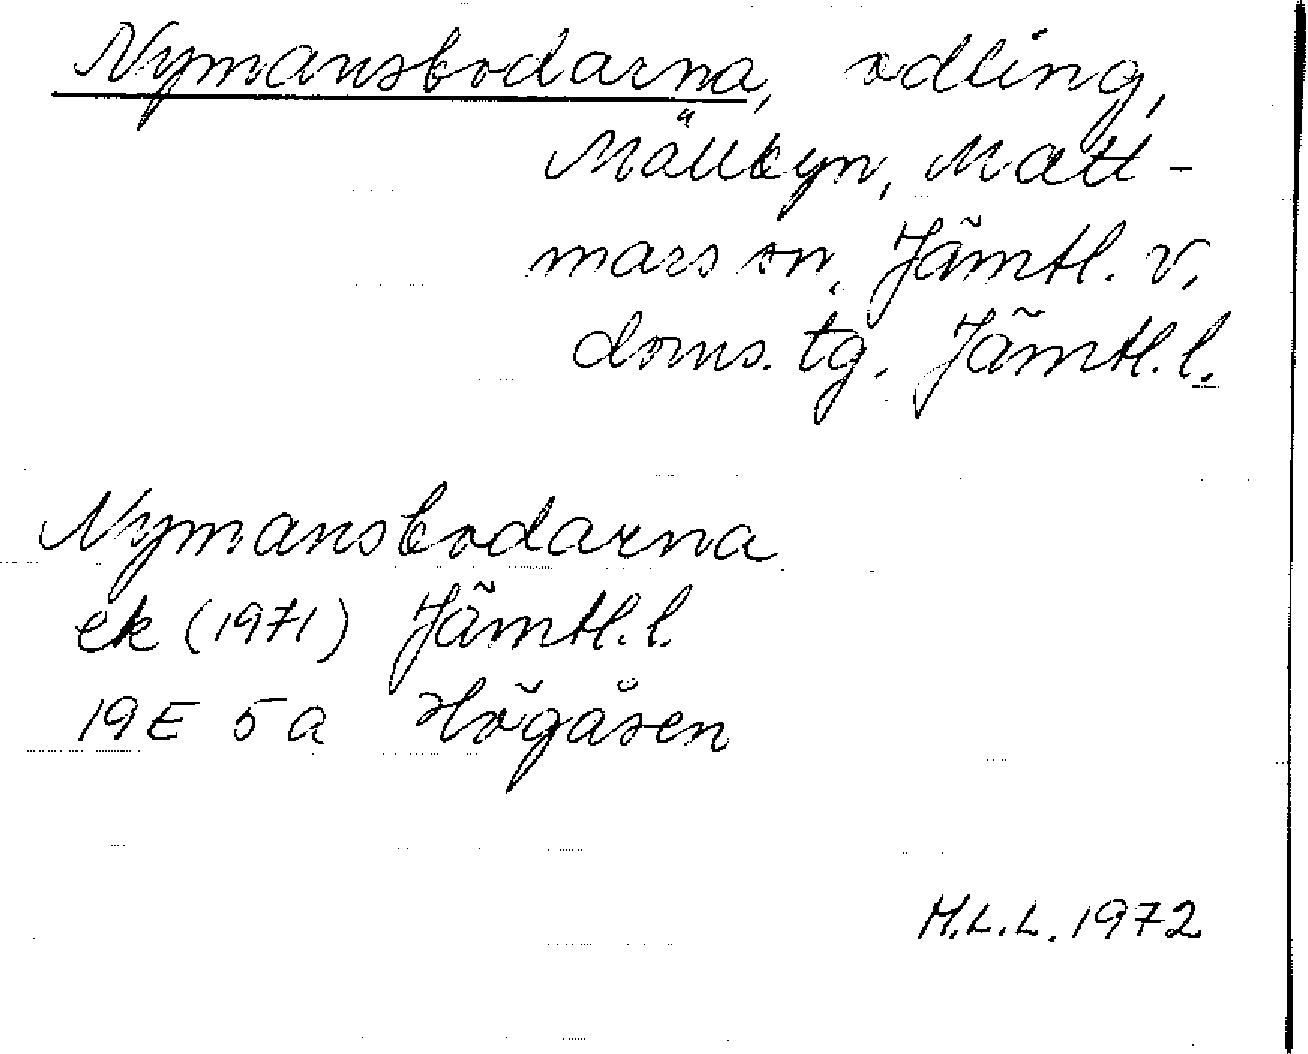 Nymansbodarna, odling,
Mällbyn, Matt-
mars sn, Jämtl. v.
doms. tg. Jämtl. l.
Nymansbodarna
ek (1971) Jämtl. l.
19E 5a Högåsen
M.L.L. 1972